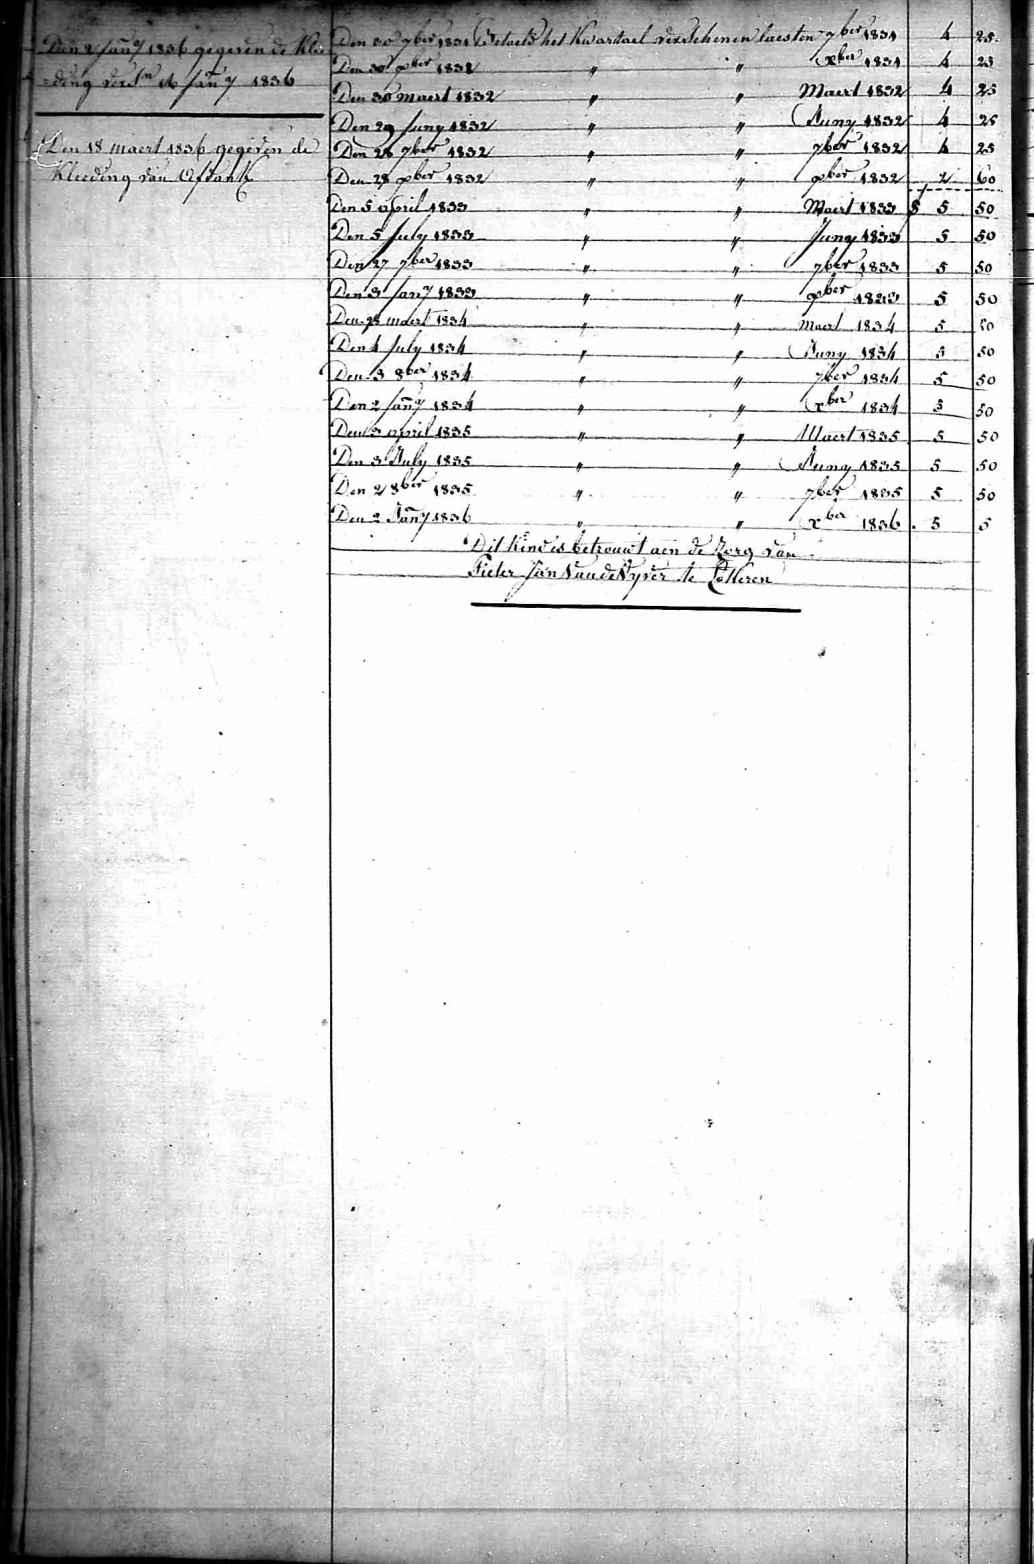 Den 2 Janry 1836 gegeven de Klee
-ding versn 16 Janry 1836
Den 18 maert 1836 gegeven de
Kleeding van Ofdank
Den 30 7ber 1831 Betaeld het Kwartael verschenen laesten 7ber 1831 4 25
Den 30 xber 1832 " " xber 1831 4 25
Den 30 maert 1832 " " Maert 1832 4 25
Den 29 Juny 1832 " " Juny 1832 4 25
Den 28 7ber 1832 " " 7ber 1832 4 25
Den 28 xber 1832 " " xber 1832 2 60
Den 5 april 1833 " " Maert 1833 5 50
Den 5 July 1833 " " Juny 1833 5 50
Den 27 7ber 1833 " " 7ber 1833 5 50
Den 3 Janry 1833 " " xber 1833 5 50
Den 28 maert 1834 " " Maert 1834 5 50
Den 4 July 1834 " " Juny 1834 5 50
Den 3 8ber 1834 " " 7ber 1834 5 50
Den 2 Janry 1834 " " xber 1834 5 50
Den 3 april 1835 " " Maert 1835 5 50
Den 3 July 1835 " " Juny 1835 5 50
Den 2 8ber 1835 " " 7ber 1835 5 50
Den 2 Janry 1836 " " xber 1836 5 5
Dit Kind is betrouwt aen de Zorg van
Pieter Jan Van de Vyver te